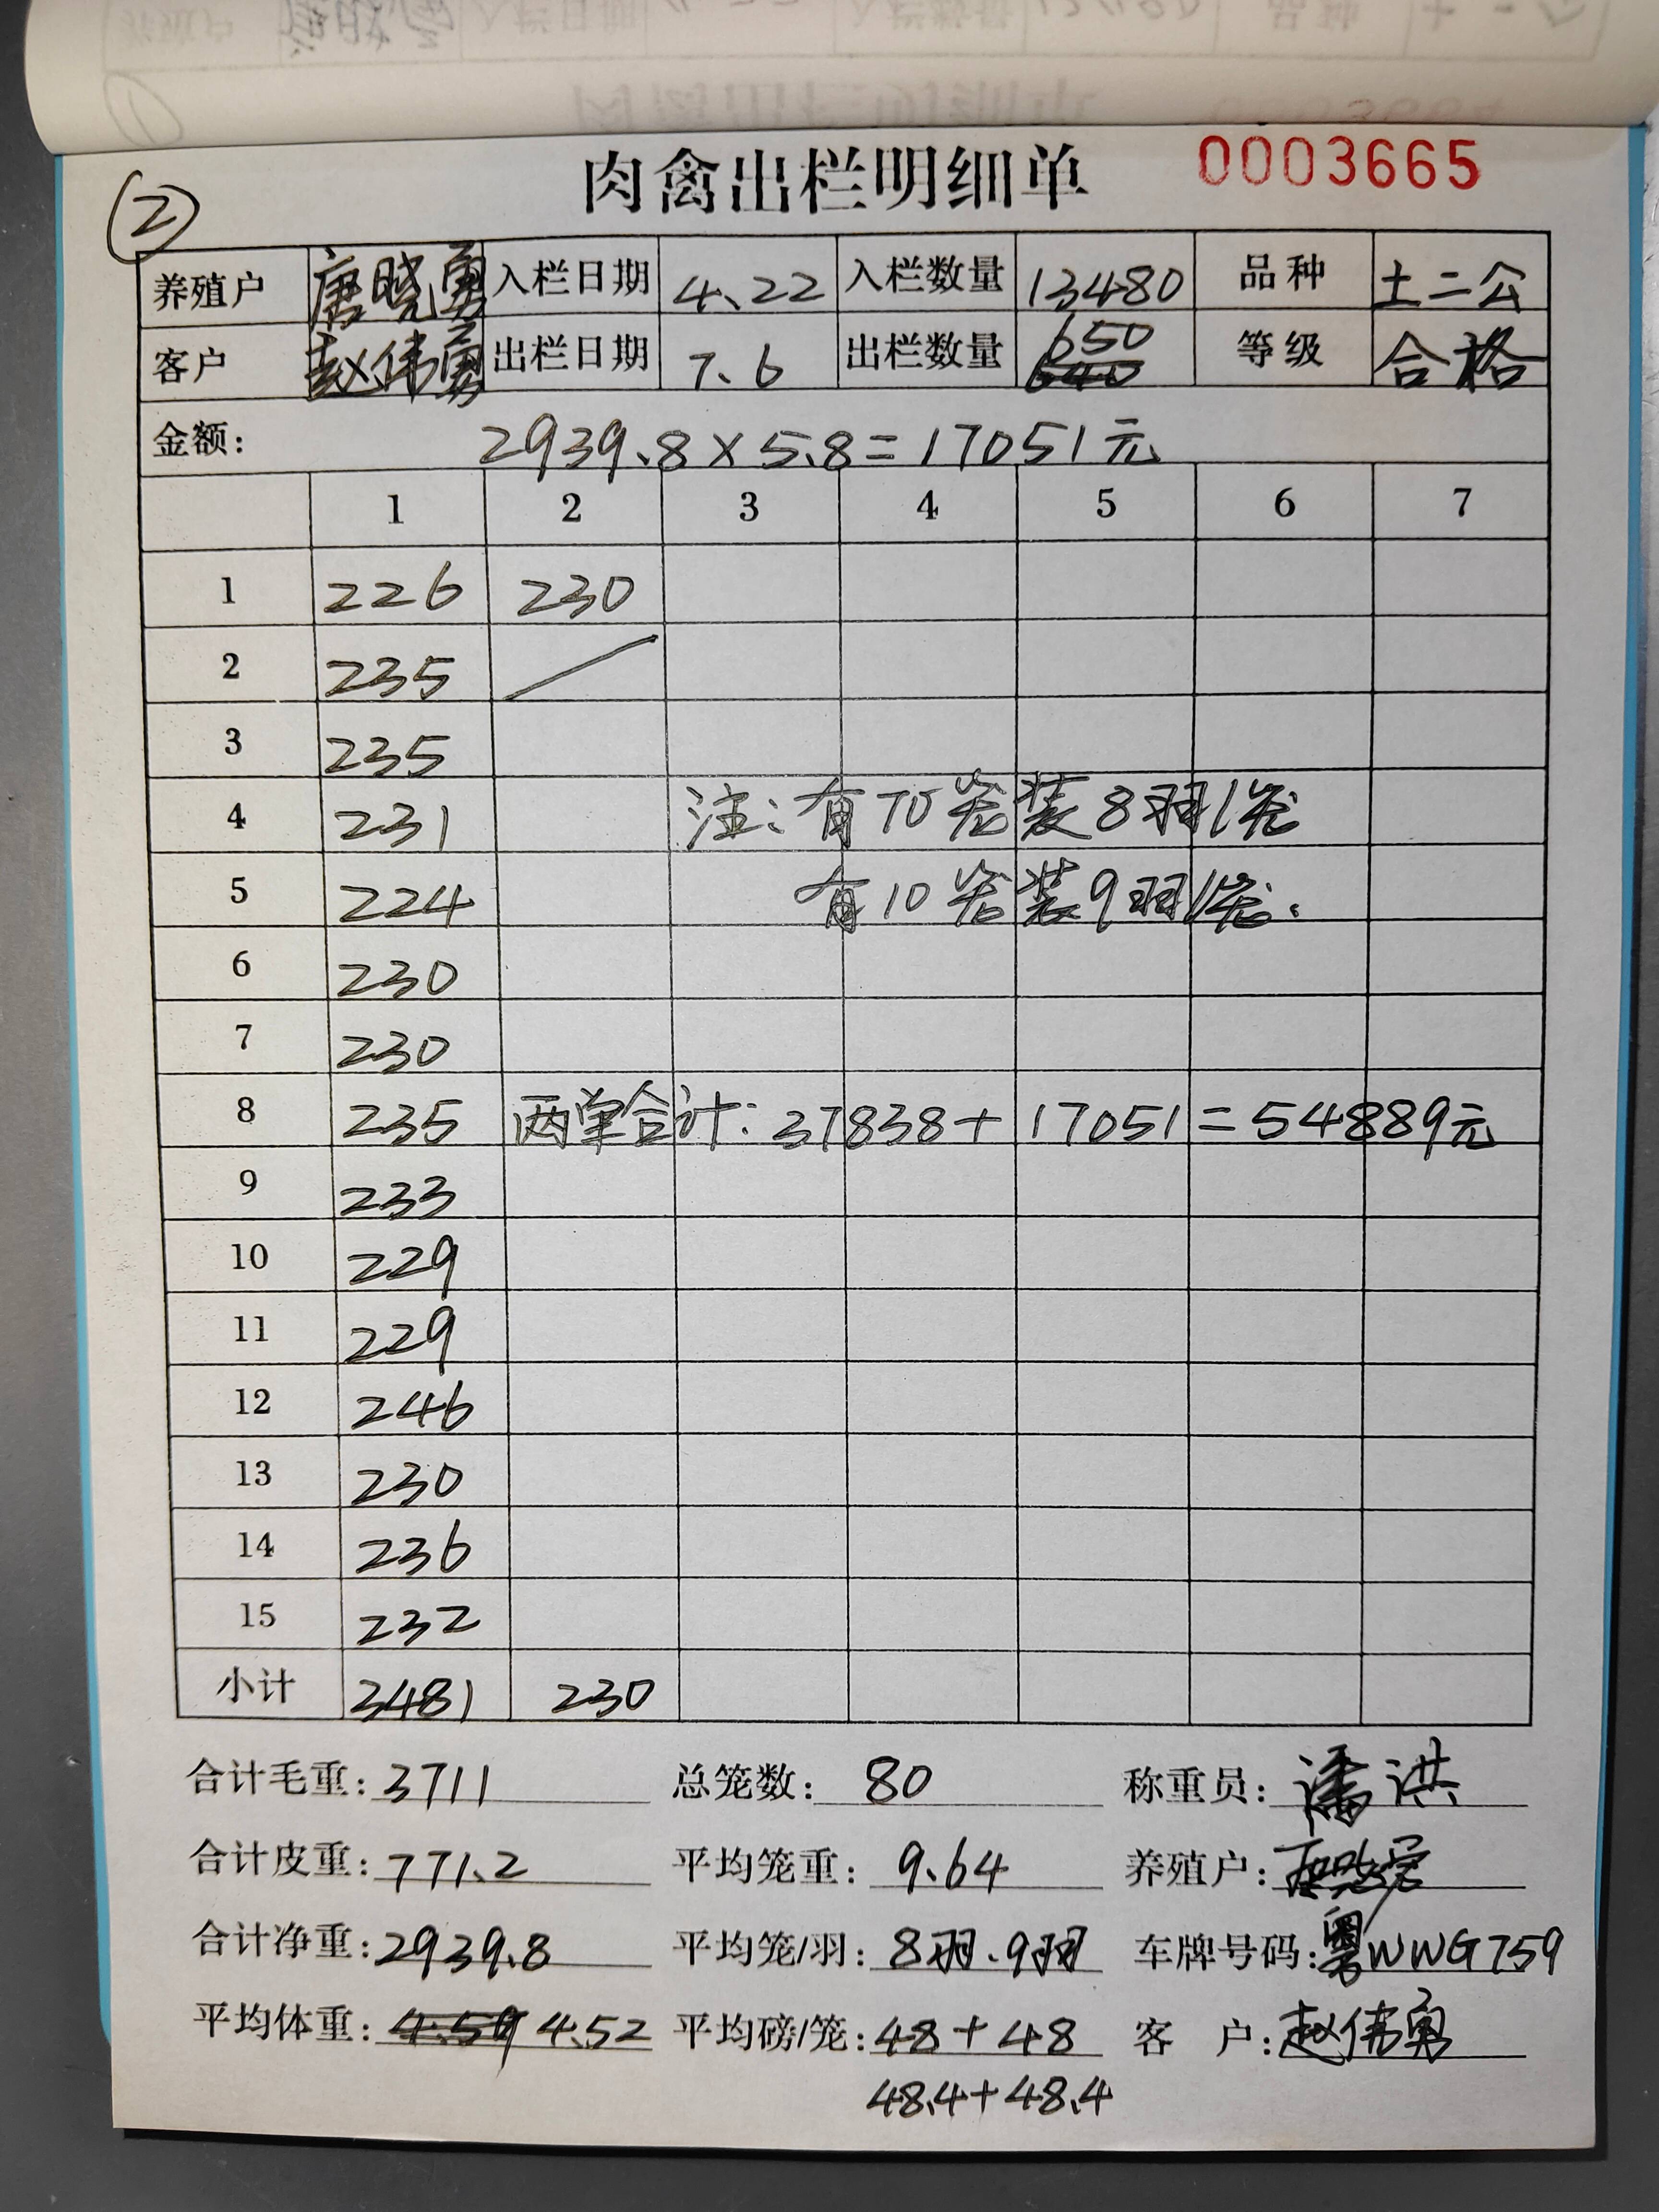 肉禽出栏明细单 0003665
②
养殖户 唐晓勇 入栏日期 4.22 入栏数量 13480 品种 土二公
客户 赵伟勇 出栏日期 7.6 出栏数量 650 640 等级 合格
金额: 2939.8×5.8=17051元
1 2 3 4 5 6 7
1 226 230
2 235 /
3 235
4 231 注:有70笼装8羽/笼
5 224 有10笼装9羽/笼.
6 230
7 230
8 235 两单合计:37838+17051=54889元
9 233
10 229
11 229
12 246
13 230
14 236
15 232
小计 3481 230
合计毛重:3711 总笼数:80 称重员:潘洪
合计皮重:771.2 平均笼重:9.64 养殖户:
合计净重:2939.8 平均笼/羽:8羽.9羽 车牌号码:粤WWG759
平均体重:4.59 4.52 平均磅/笼:48+48 客户:赵伟勇
48.4+48.4